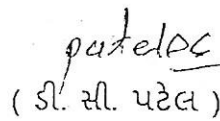 patelDC
( ડી. સી. પટેલ )